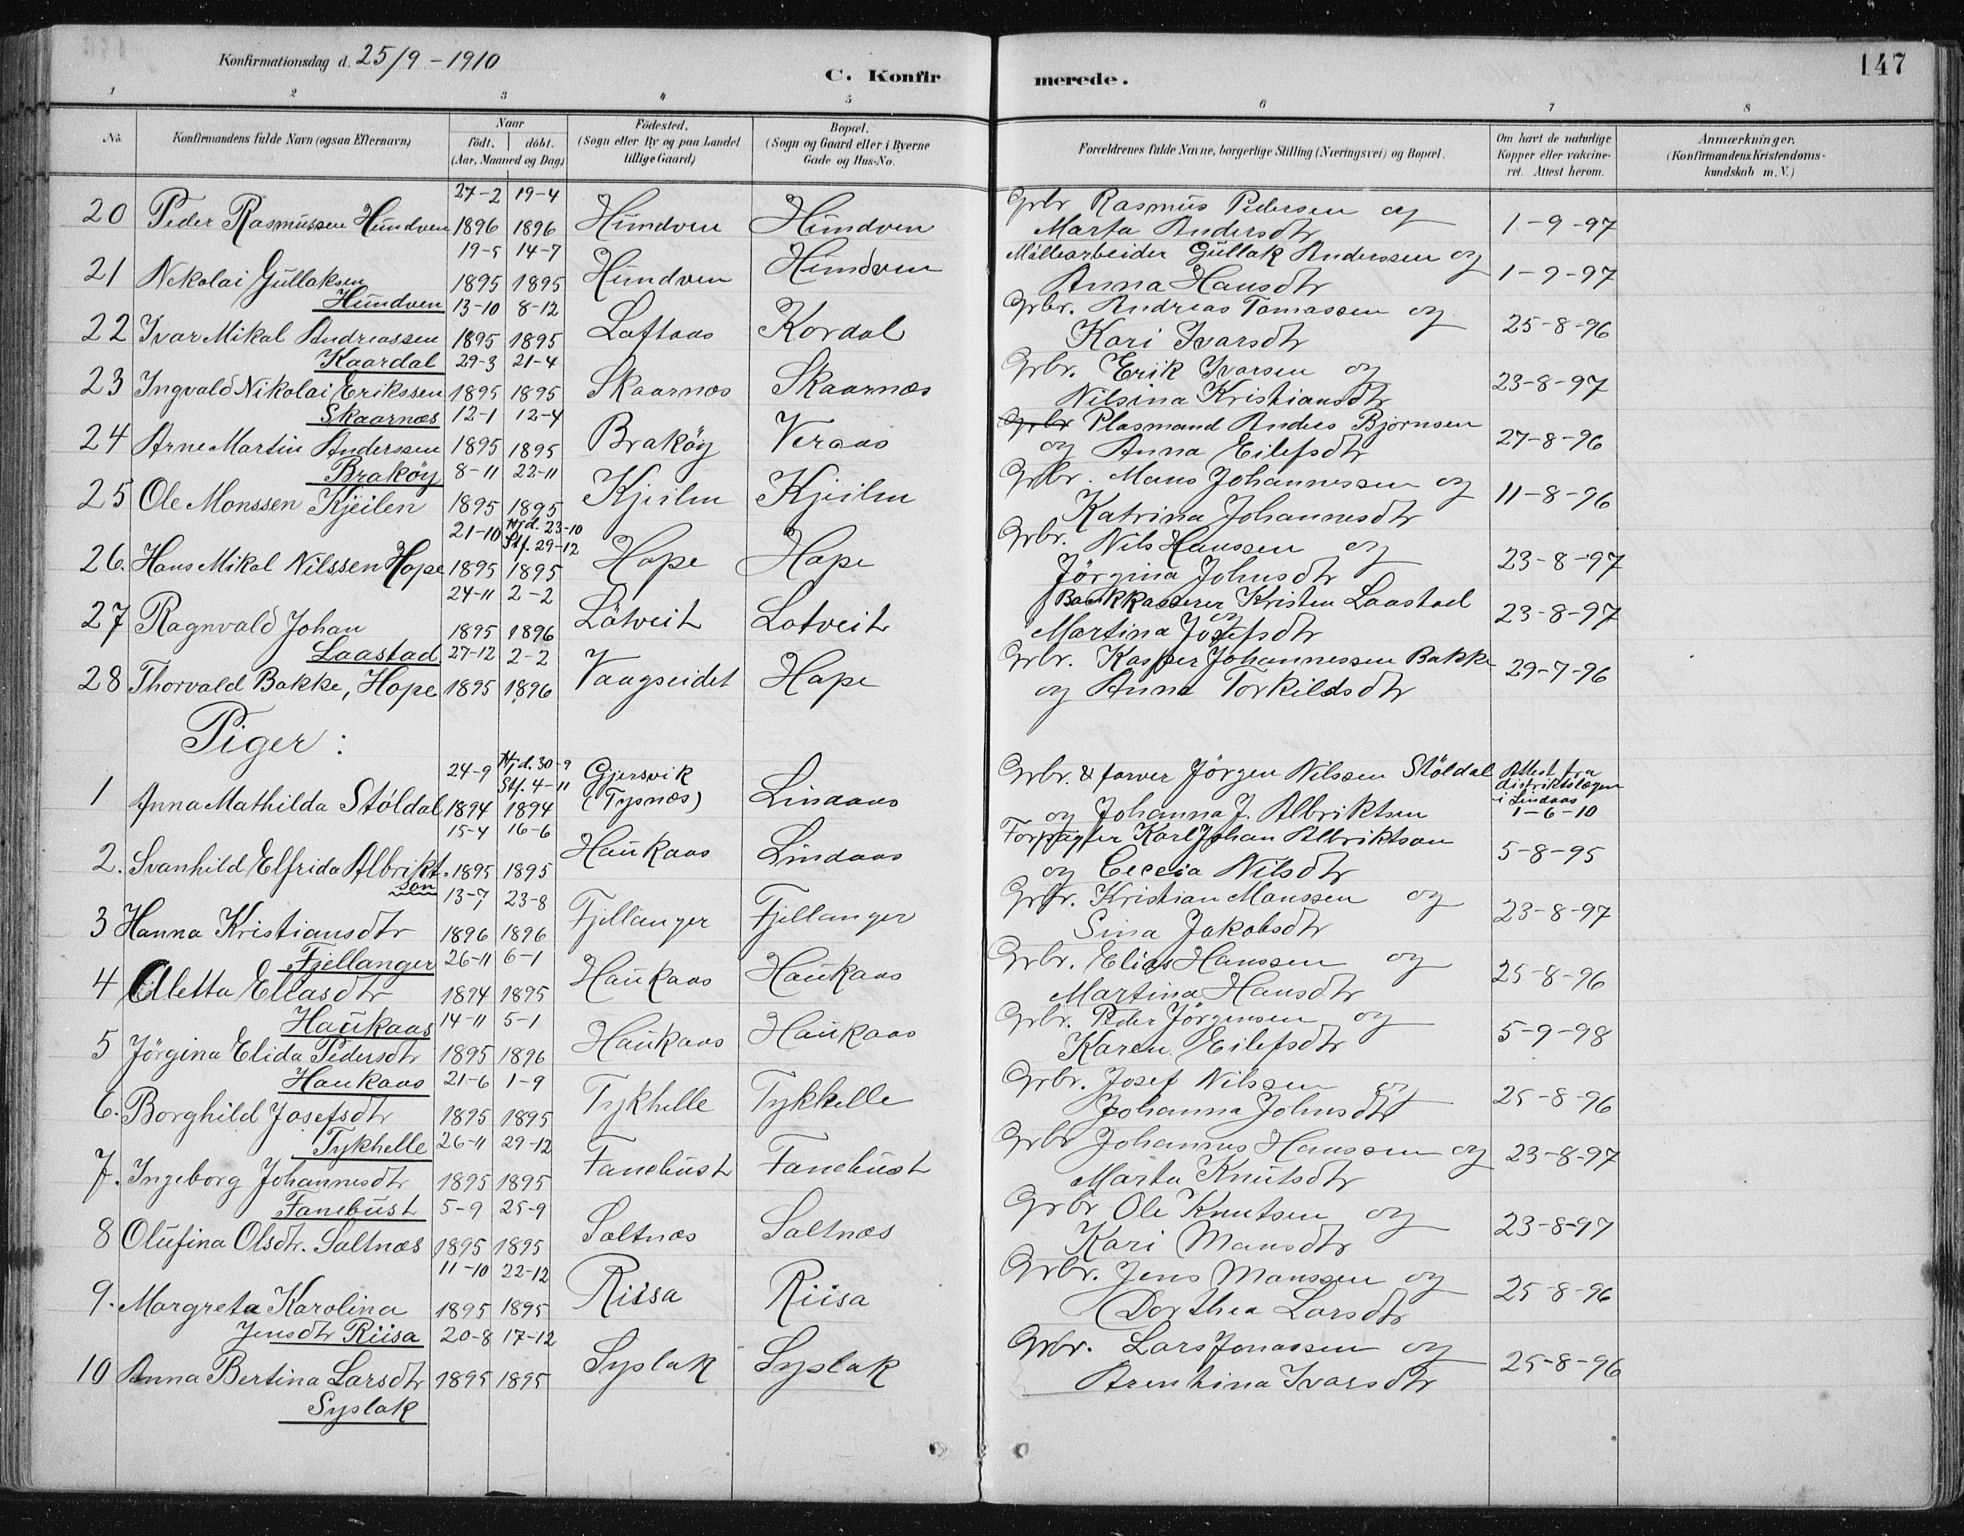 Konfirmationsdag d. 25/9 - 1910
C. Konfirmerede.
147
1 2 3 4 5 6 7 8
No.
Konfirmandens fulde Navn (ogsaa Efternavn)
Naar
födt. döbt.
(Aar, Maaned og Dag)
Födested.
(Sogn eller By og paa Landet tillige Gaard)
Bopæl.
(Sogn og Gaard eller i Byerne Gade og Hus-No.
Forældrenes fulde Navne, borgerlige Stilling (Næringsvei) og Bopæl.
Om havt de naturlige Kopper eller vakcineret. Attest herom.
Anmærkninger.
(Konfirmandens Kristendomskundskab m. V.)
27-2 19-4
20 Peder Rasmussen Hundven 1896 1896 Hundven Hundven Grbr Rasmus Pedersen og Marta Andersdtr 1-9-97
19-5 14-7
21 Nikolai Gullaksen Hundven 1895 1895 Hundven Hundven Möllearbeider Gullak Anderssen og Anna Hansdtr 1-9-97
13-10 8-12
22 Ivar Mikal Andreassen Kaardal 1895 1895 Loftaas Kordal Grbr. Andreas Tomassen og Kari Ivarsdtr 25-8-96
29-3 21-4
23 Ingvald Nikolai Erikssen Skaarnæs 1895 1895 Skaarnæs Skaarnæs Grbr. Erik Ivarsen og Nilsina Kristiansdtr 23-8-97
12-1 12-4
24 Arne Martin Anderssen Braköy 1895 1895 Braköy Veraas Grbr Plasmand Anders Bjørnsen og Anna Eilefsdtr 27-8-96
8-11 22-11
25 Ole Monssen Kjeilen 1895 1895 Kjeilen Kjeilen Grbr. Mons Johannessen og Katrina Johannesdtr 11-8-96
21-10 Hjd. 23-10 Stf. 29-12
26. Hans Mikal Nilssen Hope 1895 1895 Hope Hope Grbr. Nils Hanssen og Jörgina Johnsdtr 23-8-97
24-11 2-2
27 Ragnvald Johan Laastad 1895 1896 Lötveit Lotveit Bankkasserer Kristen Laastad og Martina Josefsdtr 23-8-97
27-12 2-2
28 Thorvald Bakke, Hope 1895 1896 Vaagseidet Hope Grbr. Kasper Johannessen Bakke og Anna Torkildsdtr 29-7-96
Piger:
24-9 Hjd. 30-9 Stf. 4-11
1 Anna Mathilda Stöldal 1894 1894 Gjersvik (Tysnæs) Lindaas Grbr. & farver Jörgen Nilssen Stöldal og Johanna J. Albriktsen Attest fra distriktslægen i Lindaas 1-6-10
15-4 16-6
2. Svanhild Elfrida Albriktson 1895 1895 Haukaas Lindaas Forpagter Karl Johan Albriktson og Cecelia Nilsdtr 5-8-95
13-7 23-8
3 Hanna Kristiansdtr Fjellanger 1896 1896 Fjellanger Fjellanger Grbr. Kristian Monssen og Sina Jakobsdtr 23-8-97
26-11 6-1
4 Aletta Eliasdtr Haukaas 1894 1895 Haukaas Haukaas Grbr. Elias Hanssen og Martina Hansdtr 25-8-96
14-11 5-1
5 Jörgina Elida Pedersdtr Haukaas 1895 1896 Haukaas Haukaas Grbr. Peder Jörgensen og Karen Eilefsdtr 5-9-98
21-6 1-9
6. Borghild Josefsdtr Tykhelle 1895 1895 Tykhelle Tykhelle Grbr. Josef Nilssen og Johanna Johnsdtr 25-8-96
26-11 29-12
7. Ingeborg Johannesdtr Fanebust 1895 1895 Fanebust Fanebust Grbr Johannes Hanssen og Marta Knutsdtr 23-8-97
5-9 25-9
8 Olufina Olsdtr. Saltnæs 1895 1895 Saltnæs Saltnæs Grbr Ole Knutsen og Kari Monsdtr 23-8-97
11-10 22-12
9. Margreta Karolina Jensdtr Riisa 1895 1895 Riisa Riisa Grbr. Jens Monssen og Dorthea Larsdtr 25-8-96
20-8 17-12
10 Anna Bertina Larsdtr Syslak 1895 1895 Syslak Syslak Grbr. Lars Jonassen og Arentina Ivarsdtr 25-8-96